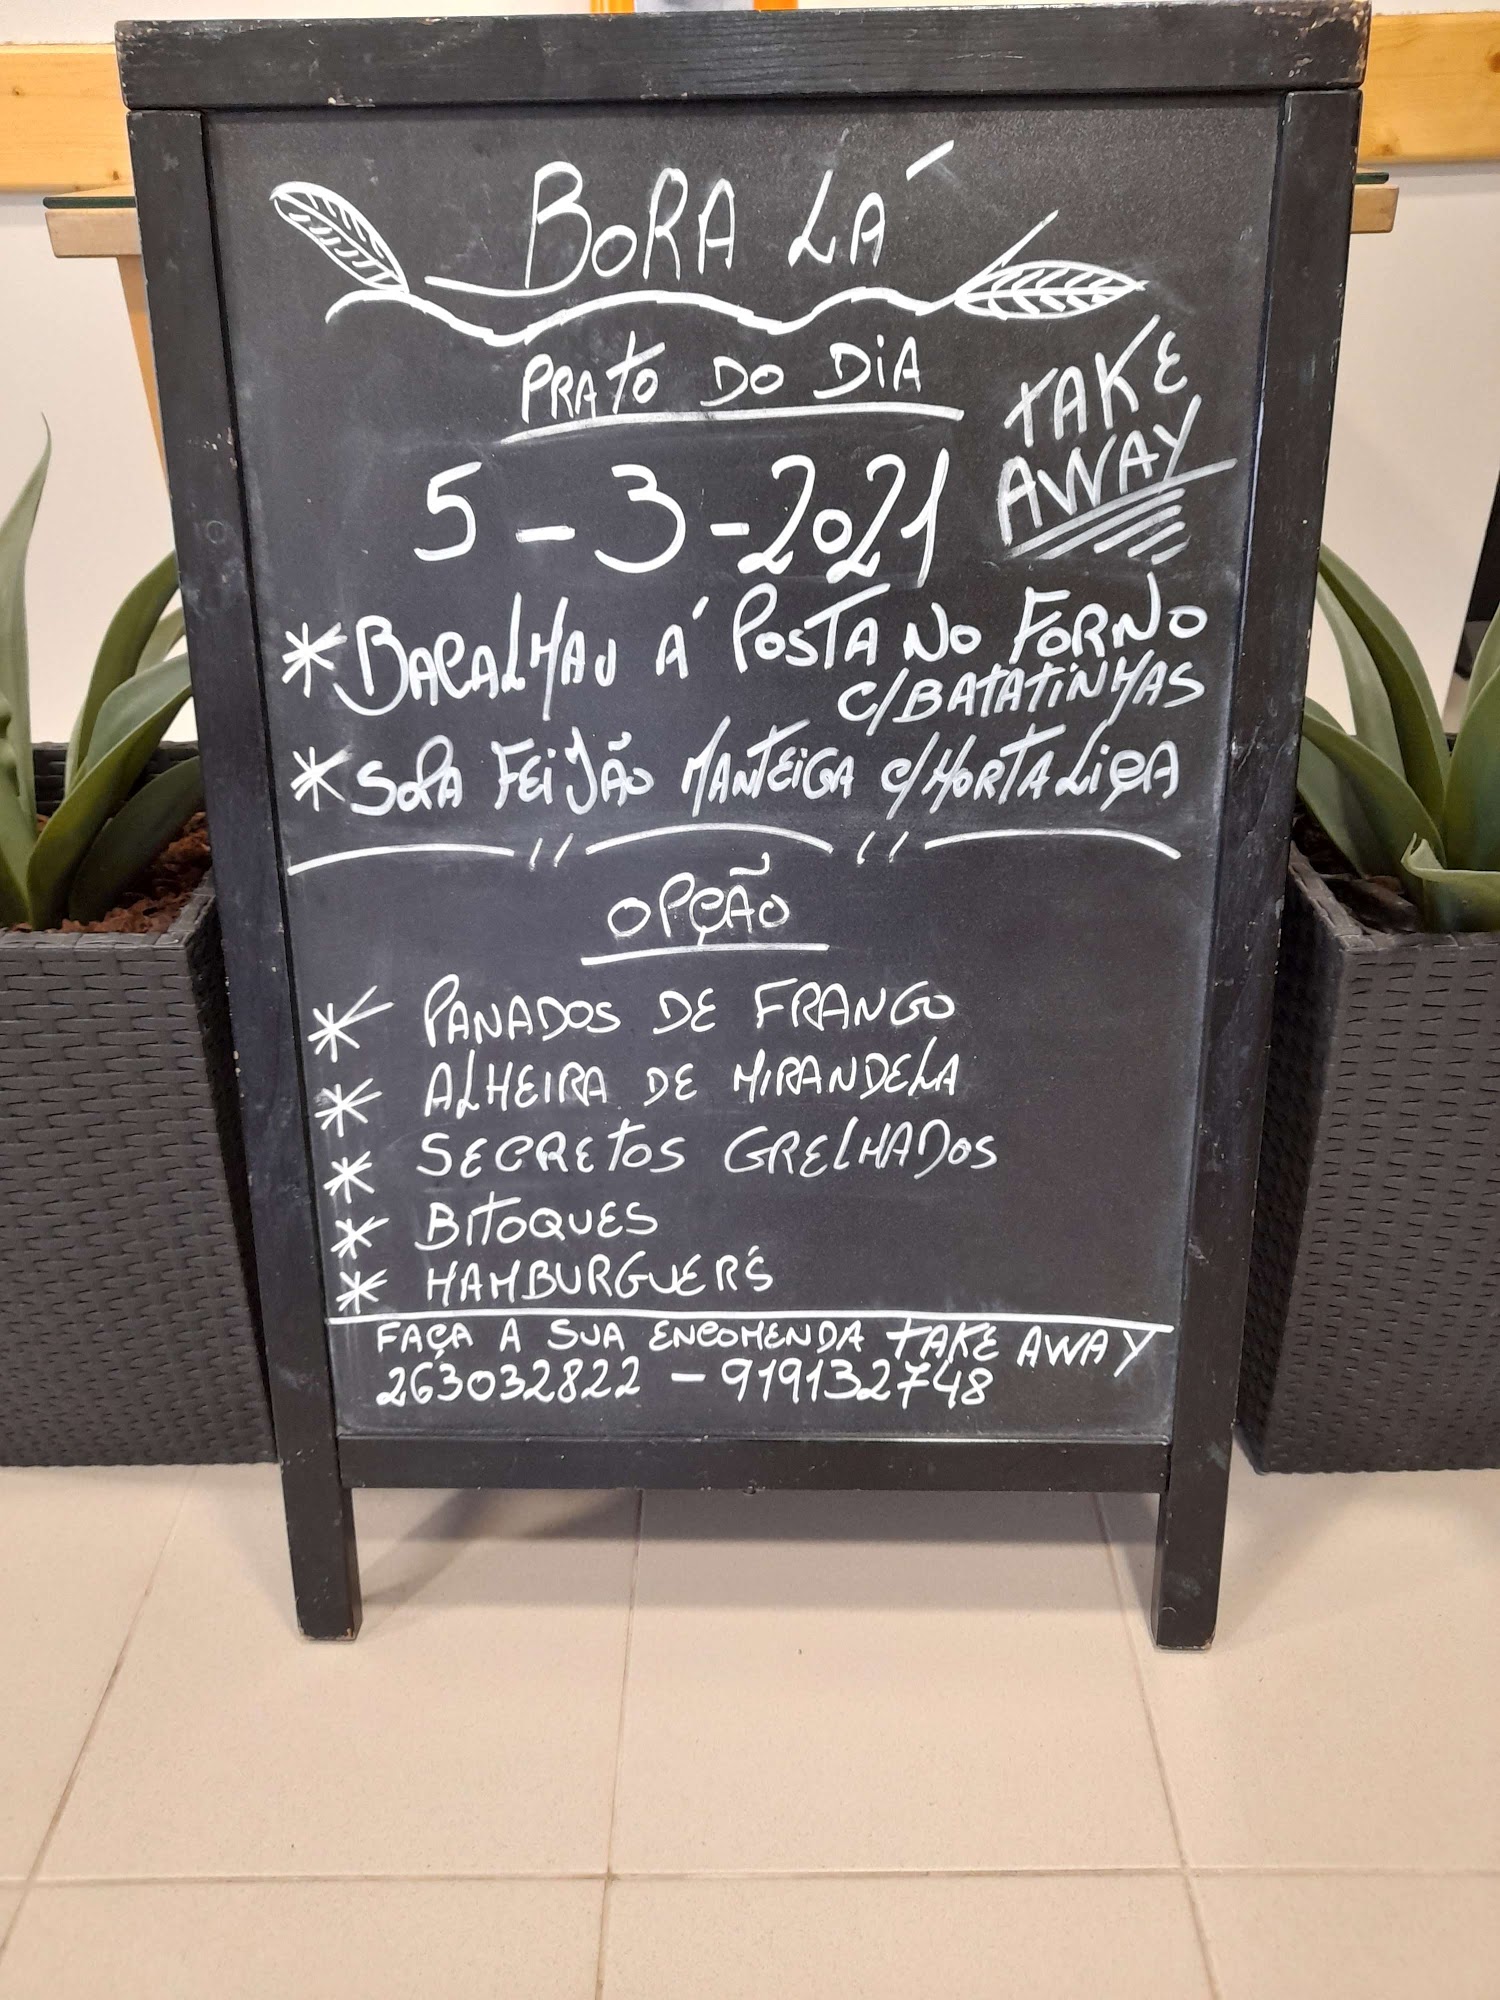 BORA LÁ
PRATO DO DIA
TAKE
AWAY
5-3-2021
* BACALHAU Á POSTA NO FORNO
C/BATATINHAS
* SOPA FEIJÃO MANTEIGA C/HORTALIÇA
OPÇÃO
* PANADOS DE FRANGO
* ALHEIRA DE MIRANDELA
* SECRETOS GRELHADOS
* BITOQUES
* HAMBURGUER'S
FAÇA A SUA ENCOMENDA TAKE AWAY
263032822 - 919132748